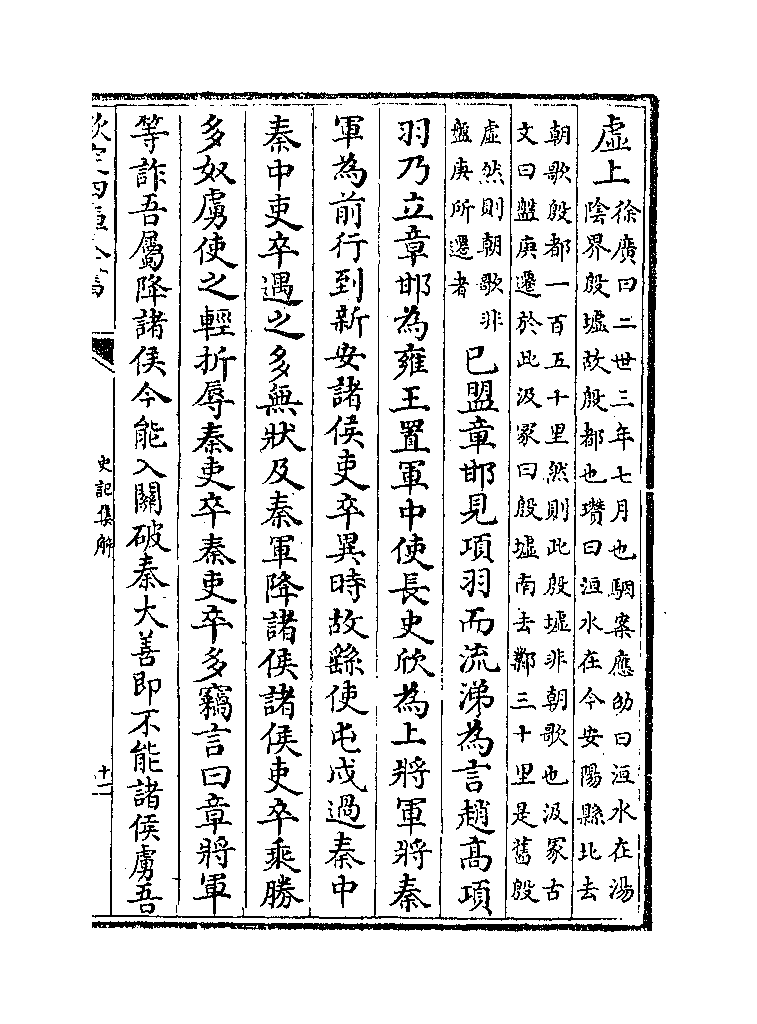 虛上
徐廣曰二世三年七月也駰案應劭曰洹水在湯
陰界殷墟故殷都也瓚曰洹水在今安陽縣北去
朝歌殷都一百五十里然則此殷墟非朝歌也汲冢古
文曰盤庚遷於此汲冢曰殷墟南去鄴三十里是舊殷
虛然則朝歌非
盤庚所遷者
已盟章邯見項羽而流涕為言趙高項
羽乃立章邯為雍王置軍中使長史欣為上將軍將秦
軍為前行到新安諸侯吏卒異時故繇使屯戍過秦中
秦中吏卒遇之多無狀及秦軍降諸侯諸侯吏卒乘勝
多奴虜使之輕折辱秦吏卒秦吏卒多竊言曰章將軍
等詐吾屬降諸侯今能入關破秦大善即不能諸侯虜吾
欽定四庫全書
史記集解
十二